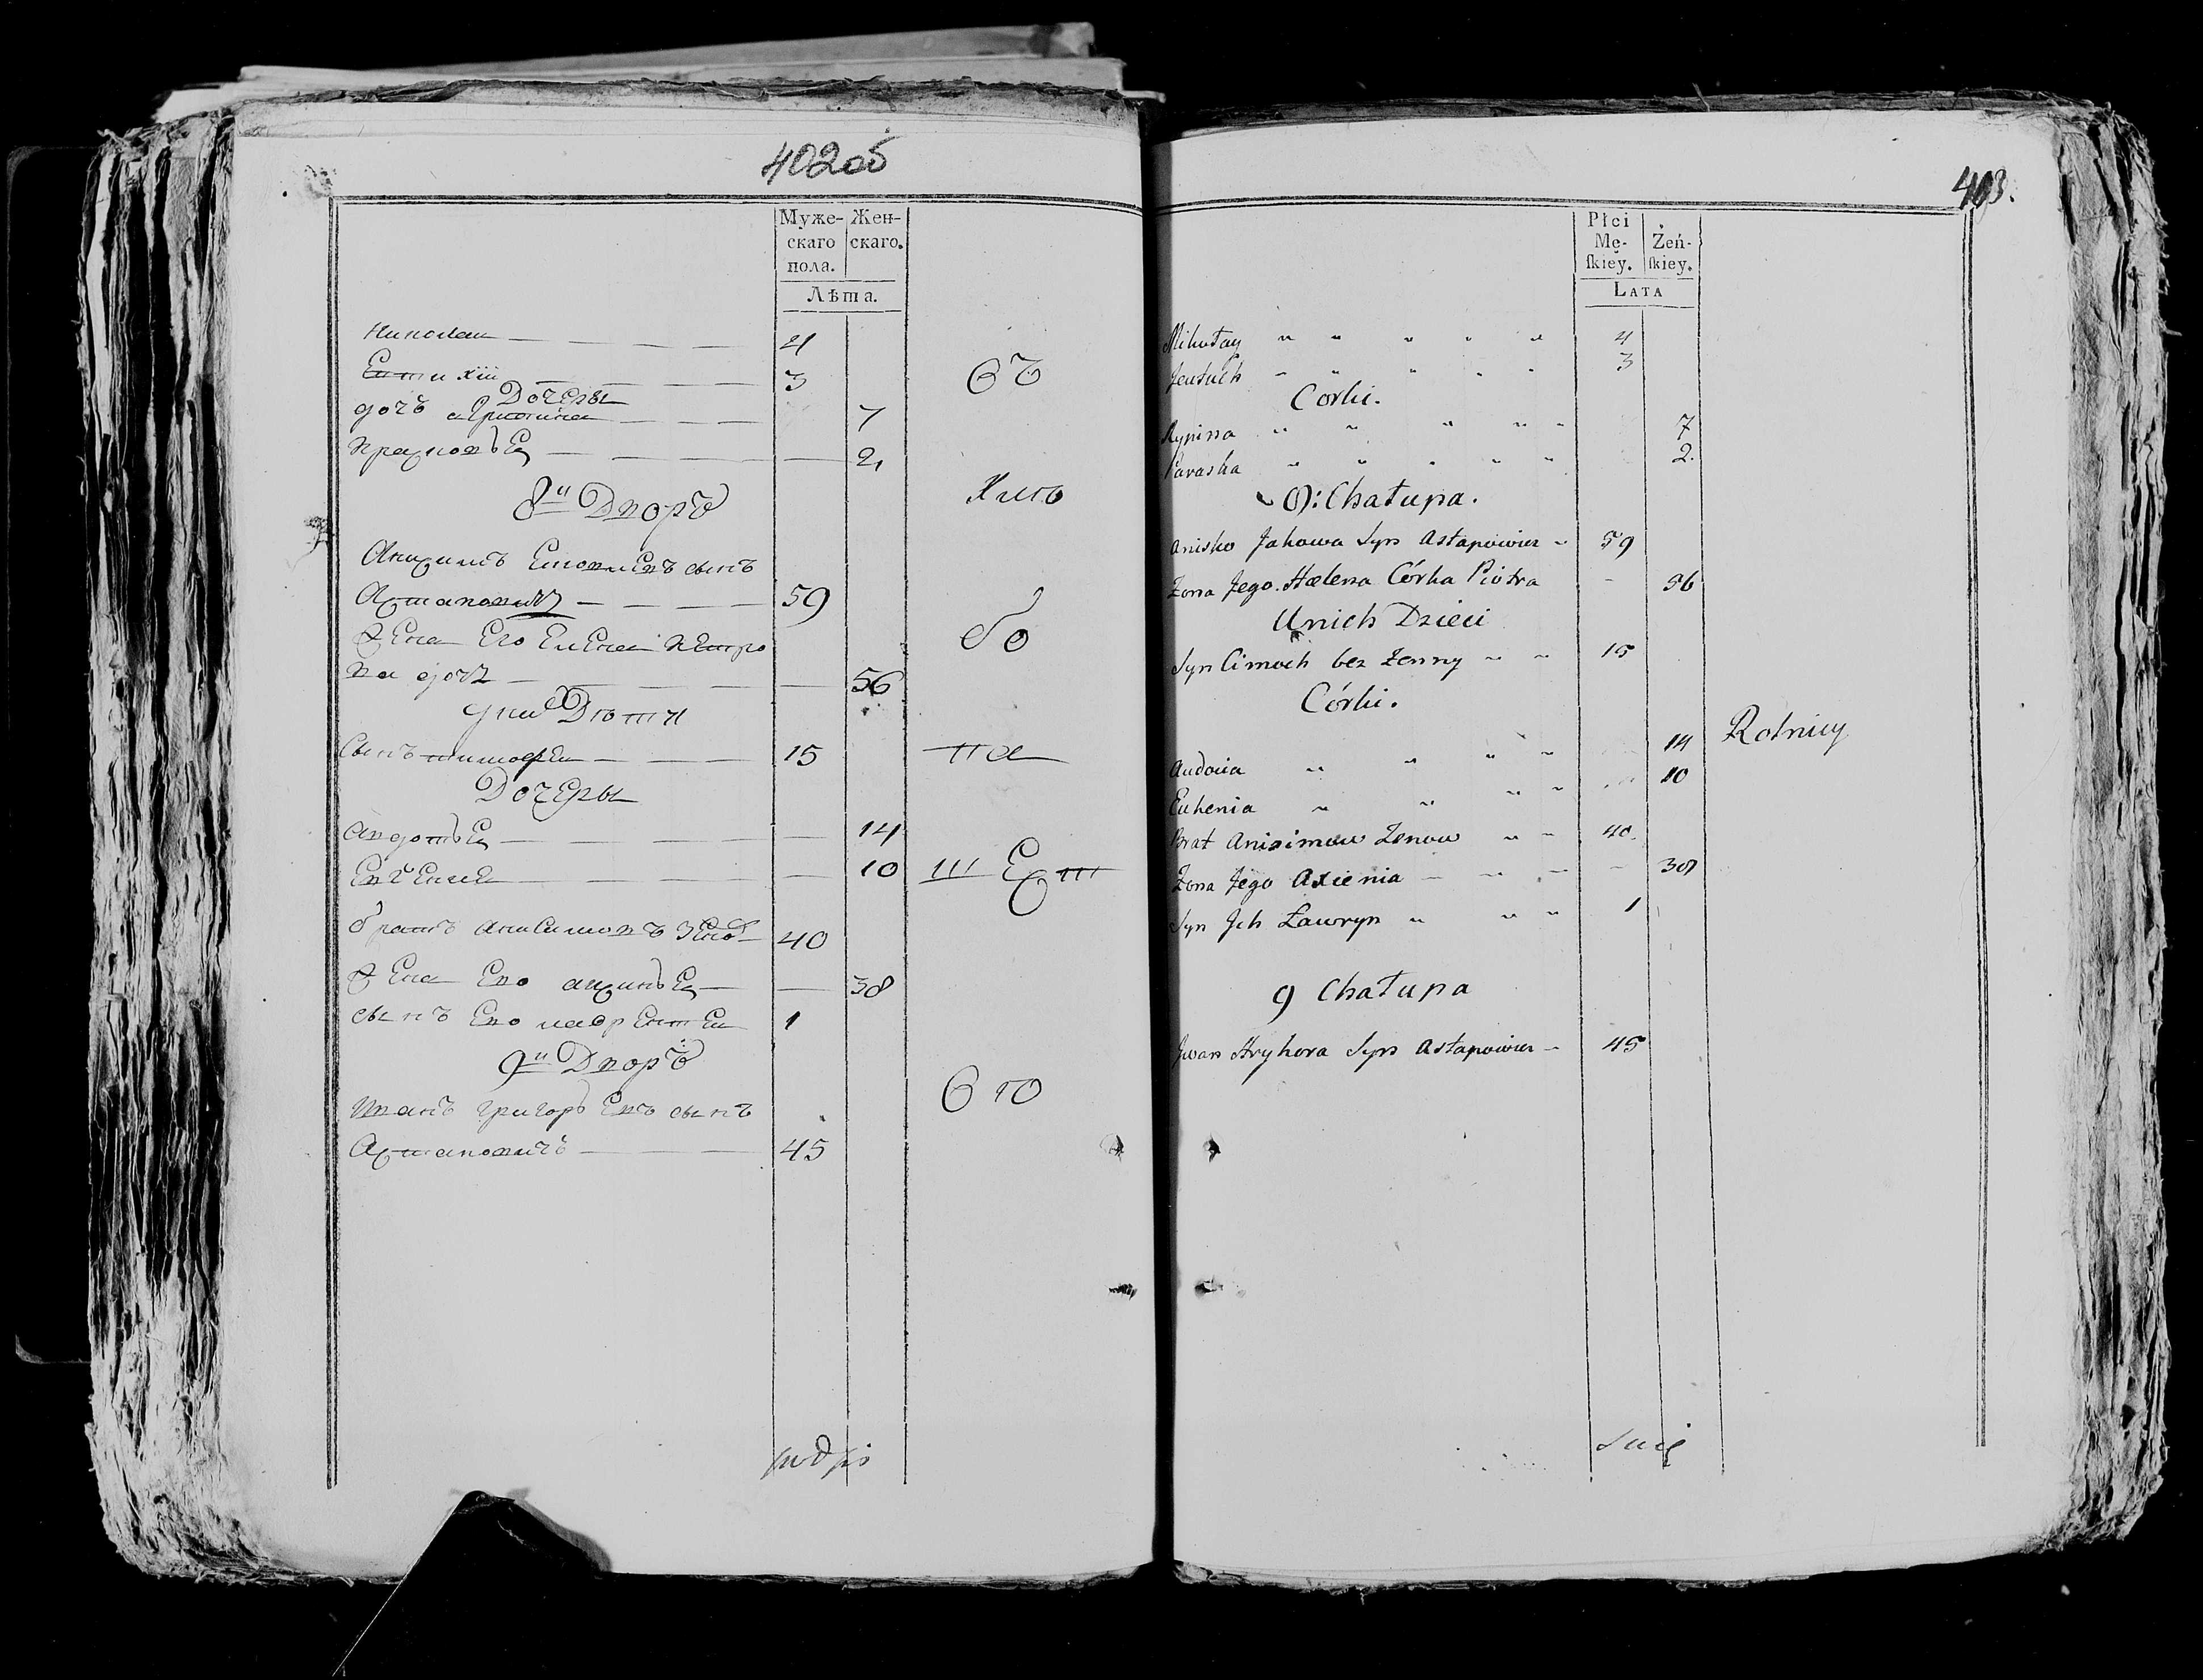 402об
Муже-
скаго
пола.
Жен-
скаго.
Лѣта.
Николаи 4
Евтихїи 3
Дочеры
дочь Христина 7
Прасковѣя 2
8й Дворъ
Анисимъ
сынъ
Астаповичъ 59
Жена Его Елена Петро
ва дочъ 56
у них Дѣти
сынъ тимофеи 15
Дочеры
Авдотья 14
Евгения 10
братъ анисимовъ Зенов 40
Жена Ево аксинья 38
сынъ Ево лаврентеи 1
9й Дворъ
Иванъ григорьевъ сынъ
Астаповичъ 45
6 го
podpis
403.
Płci
Mę-
ſkiey.
Żeń-
ſkiey.
LATA
Mikołay 4
Jeutuch 3
Corki.
Krynina 7
Paraska 2.
8: Chałupa.
Anisko Jakowa Syn Astapowicz 59
Zona Jego Helena Córka Piotra 56
U nich Dzieci
Syn Cimoch bez Zenny 15
Córki.
Audocia 14
Rolnicy
Euhenia 10
Brat Anisimau Zenow 40.
Zona Jego Axienia 38
Syn Jch Ławryn 1
9 Chałupa
Jwan Hryhora Syn Astapowicz 45